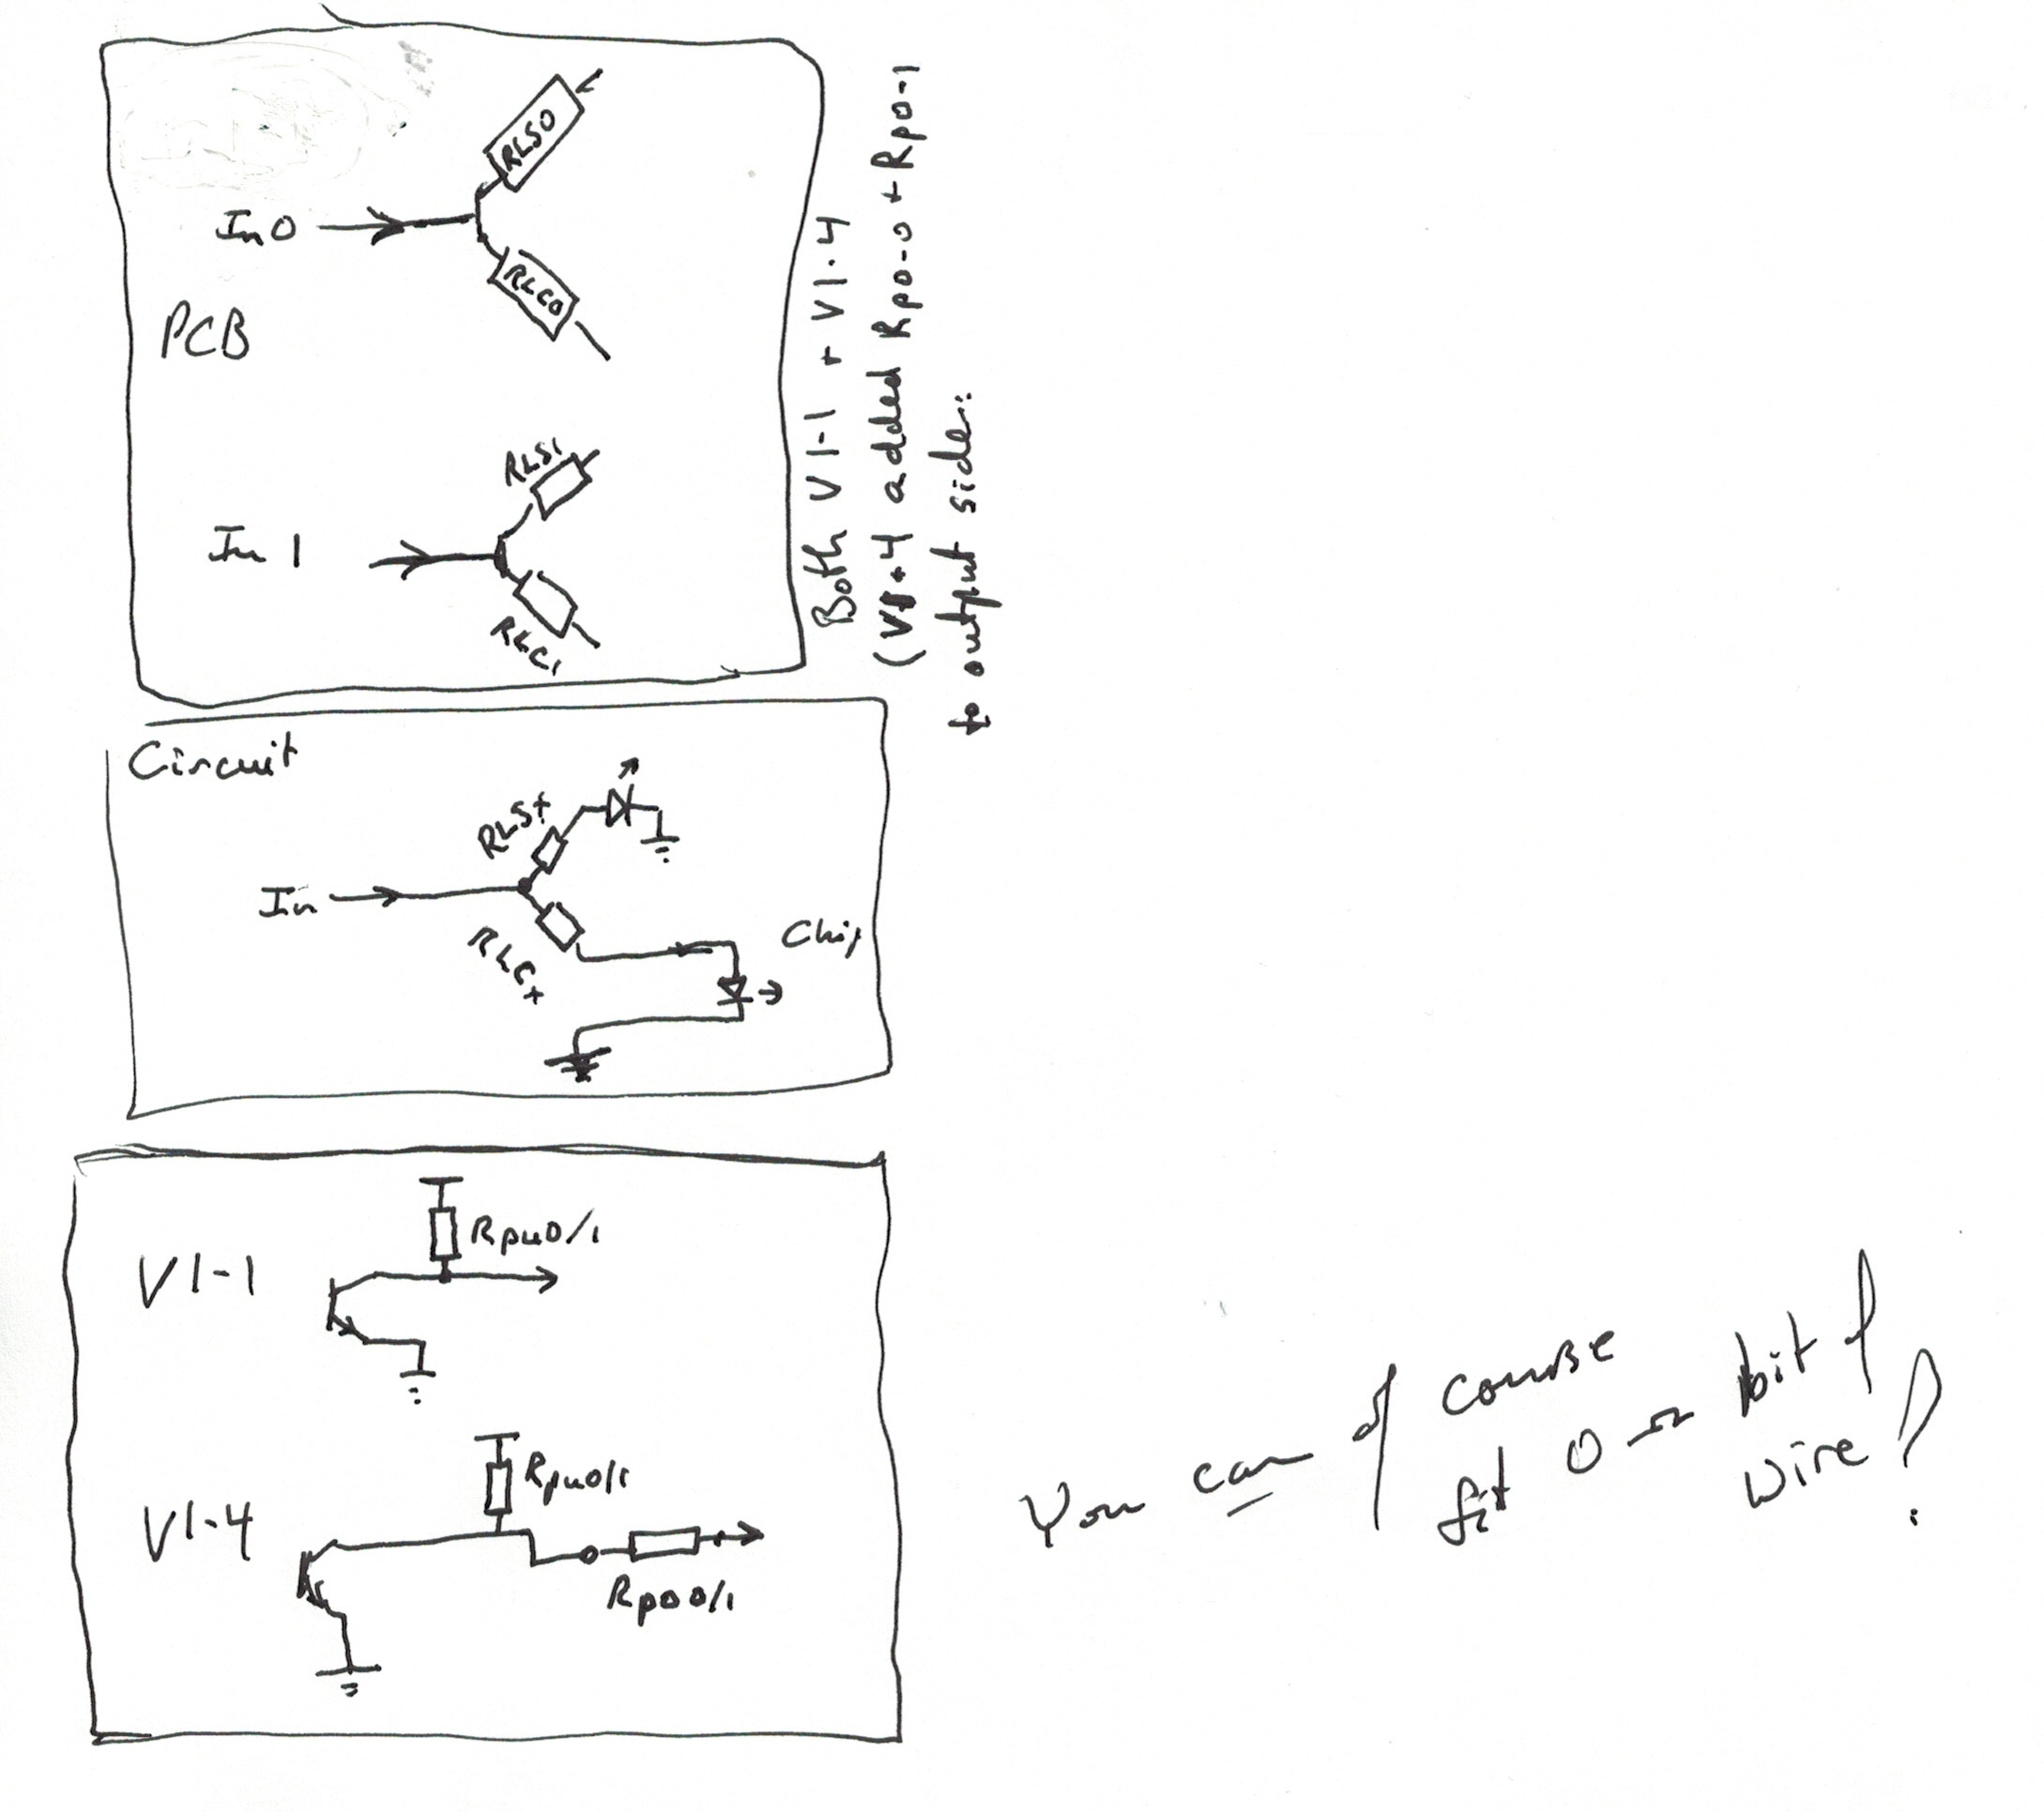 RLSO
In 0
RLCO
PCB
RLS1
In 1
RLC1
Both V1-1 + V1.4
(V1+4 added Rpo-0 + Rpo-1
to output side..
Circuit
RLS+
In
RLC+
Chip
V1-1
Rpu0/1
V1-4
Rpu0/1
Rpo0/1
You can of course
fit 0 or bit of
wire!